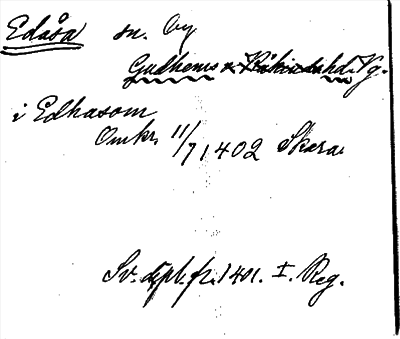 Edåsa sn. by
Gudhems o. Kåkinds hd. Vg.
i Edhasom
Omkr. 11/7 1402 Skara
Sv. dipl. fr. 1401. I. Reg.